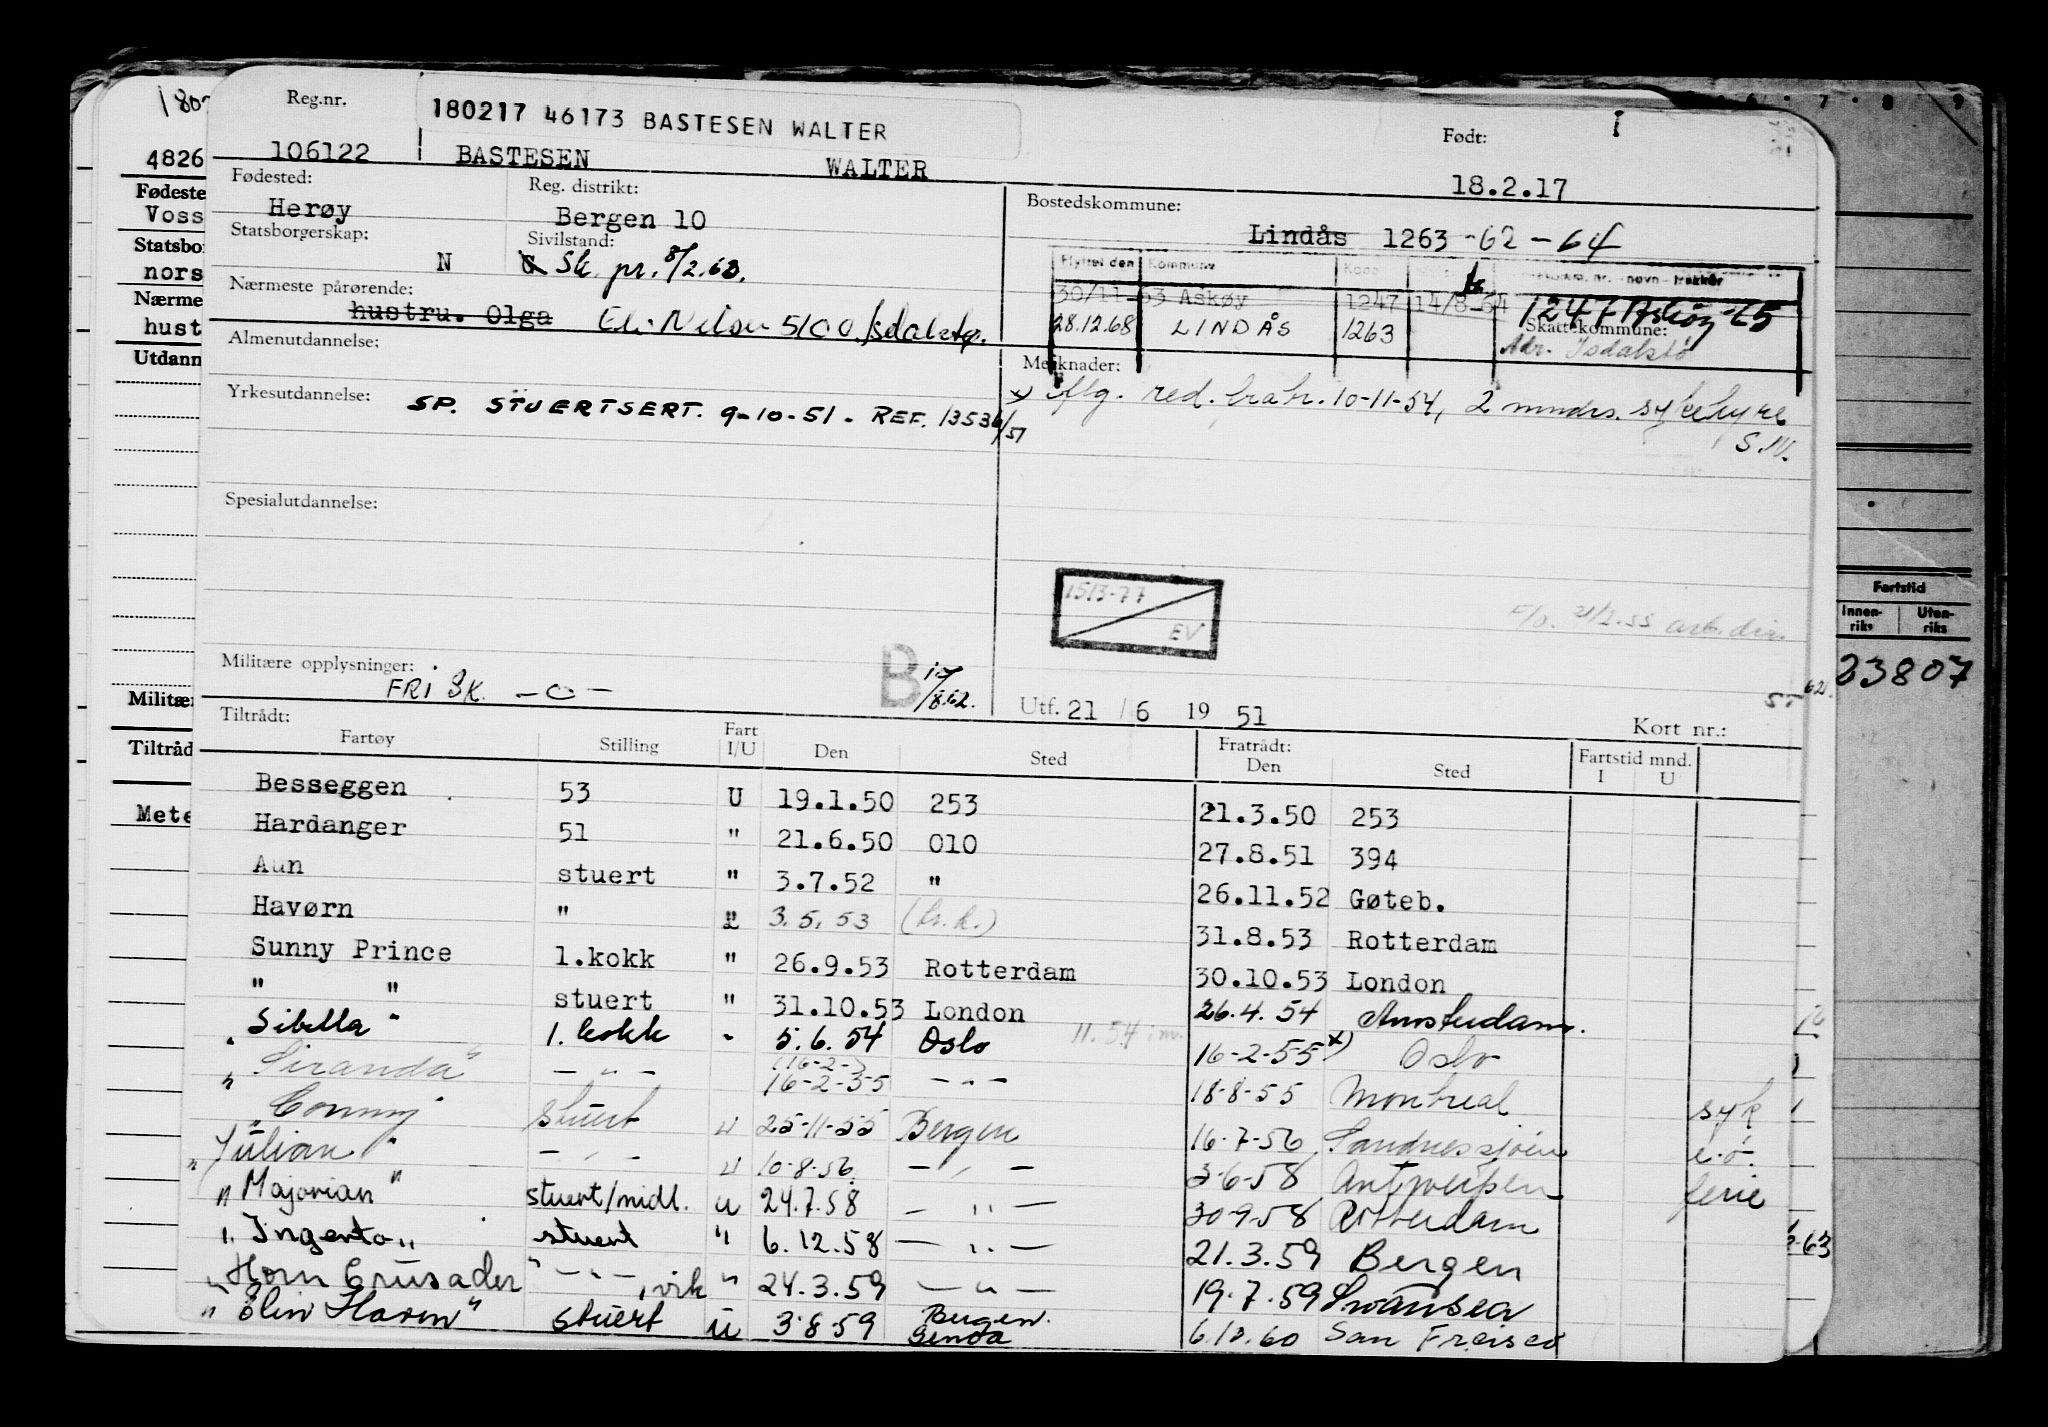 Reg.nr.
180217 46173 BASTESEN WALTER
Født:
106122 BASTESEN WALTER 18.2.17
Fødested: Herøy
Reg. distrikt: Bergen 10
Bostedskommune: Lindås 1263 -62-64
Statsborgerskap: N
Sivilstand: G Sk. pr. 8/2.63.
Flyttet den Kommune
30/11-63 Askøy 1247 14/8-64
28.12.68 LINDÅS 1263
Skattekommune:
Adr. Isdalstø
Nærmeste pårørende: hustru. Olga
5100 Isdalstø.
Almenutdannelse:
Merknader:
10-11-54, 2 mndrs. sykehyre
Yrkesutdannelse: SP. STUERTSERT. 9-10-51. REF. 13536/51
Spesialutdannelse:
1513-77
EV
21/2.55 arb. dir.
Militære opplysninger: FRI SK. -0-
B 17/8.62.
Utf. 21/6 19 51
Kort nr.:
Tiltrådt:
Fratrådt:
Fartstid mnd.
Fartøy Stilling Fart I/U Den Sted Den Sted I U
Besseggen 53 U 19.1.50 253 21.3.50 253
Hardanger 51 " 21.6.50 010 27.8.51 394
Aun stuert " 3.7.52 " 26.11.52 Gøteb.
Havørn " " 3.5.53 31.8.53 Rotterdam
Sunny Prince 1.kokk " 26.9.53 Rotterdam 30.10.53 London
" " stuert " 31.10.53 London 26.4.54 Amsterdam.
"Sibella" 1. kokk " 5.6.54 Oslo 16-2-55 x) Oslo
"Siranda" -"- (16-2-) 16-2-55 -"- 18-8-55 Montreal
"Conny" stuert u 25-11-55 Bergen 16-7-56 Sandnessjøen syk
"Julian" -"- u 10-8-56 -"- 3-6-58 Antwerpen e.ø.
"Majorian" stuert/midl. u 24.7.58 -"- 30-9-58 Rotterdam ferie
"Ingerto" stuert " 6.12.58 -"- 21.3.59 Bergen
"Horn Crusader" -"-, vik " 24.3.59 -"- 19.7.59 Swansea
"Elin Haven" stuert u 3.8.59 Bergen. Genoa 6.12.60
4826
Fødeste
Voss
Statsbor
nors
Nærme
hust
Utdann
Militær
Tiltråd
Mete
Fartstid
Innen-riks Uten-riks
23807